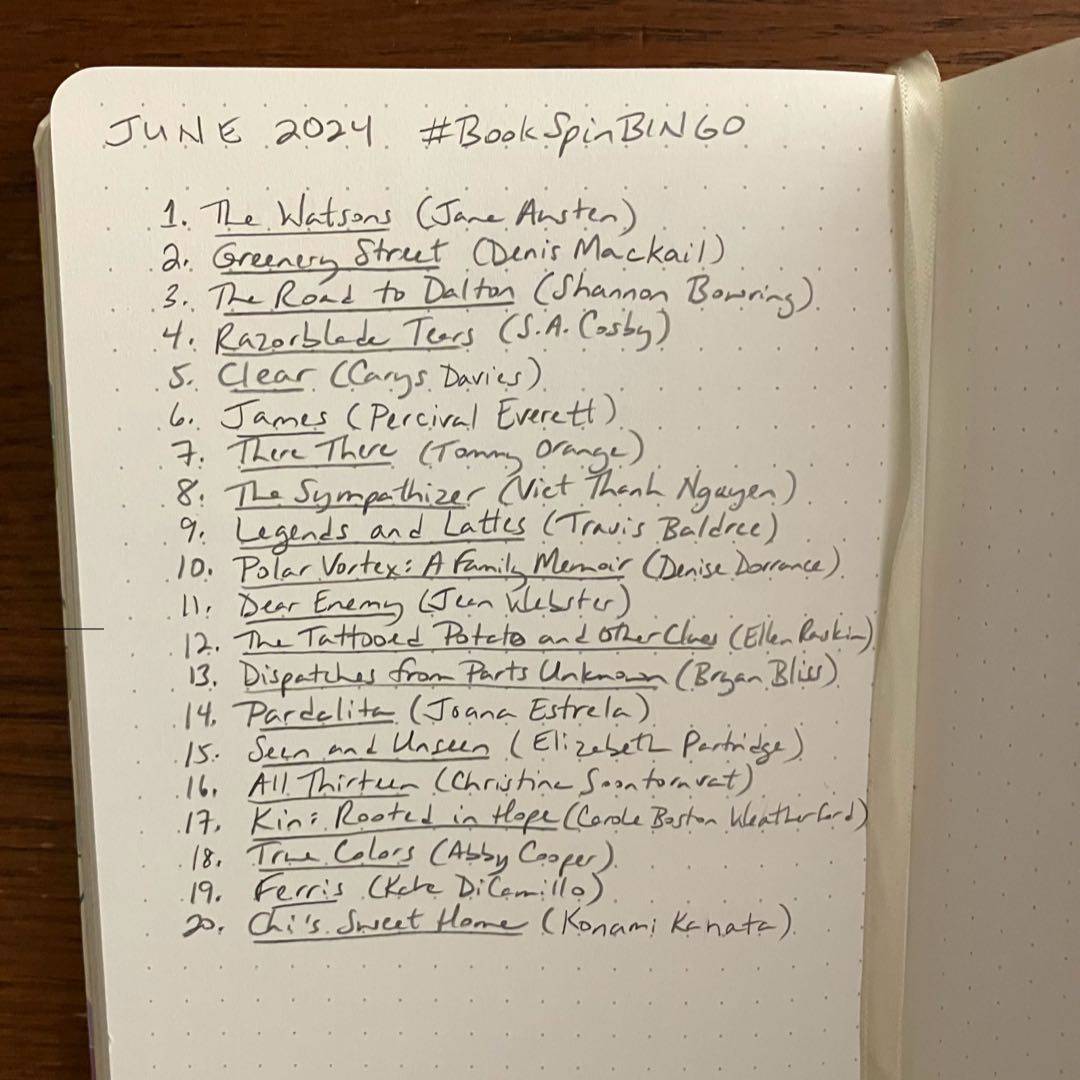 JUNE 2024 #BookSpinBINGO
1. The Watsons (Jane Austen)
2. Greenery Street (Denis Mackail)
3. The Road to Dalton (Shannon Bowring)
4. Razorblade Tears (S.A. Cosby)
5. Clear (Carys Davies)
6. James (Percival Everett)
7. There There (Tommy Orange)
8. The Sympathizer (Viet Thanh Nguyen)
9. Legends and Lattes (Travis Baldree)
10. Polar Vortex: A Family Memoir (Denise Dorrance)
11. Dear Enemy (Jean Webster)
12. The Tattooed Potato and Other Clues (Ellen Raskin)
13. Dispatches from Parts Unknown (Bryan Bliss)
14. Pardalita (Joana Estrela)
15. Seen and Unseen (Elizabeth Partridge)
16. All Thirteen (Christina Soontornvat)
17. Kin: Rooted in Hope (Carole Boston Weatherford)
18. True Colors (Abby Cooper)
19. Ferris (Kate DiCamillo)
20. Chi's Sweet Home (Konami Kanata)